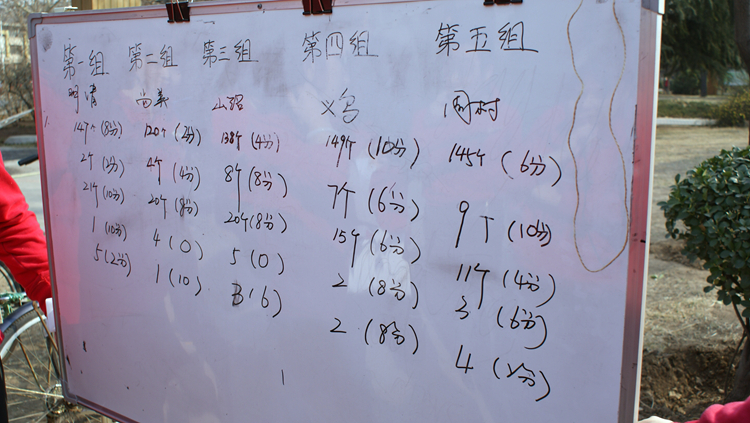 第一组 第二组 第三组 第四组 第五组
明清 尚义 山口 义乌 周村
147个(8分) 120个(2分) 138个(4分) 149个(10分) 145个(6分)
2个(2分) 4个(4分) 8个(8分) 7个(6分) 9个(10分)
21个(10分) 20个(8分) 20个(8分) 15个(6分) 11个(4分)
1(10分) 4(0) 5(0) 2(8分) 3(6分)
5(2分) 1(10) 3(6) 2(8分) 4(2分)